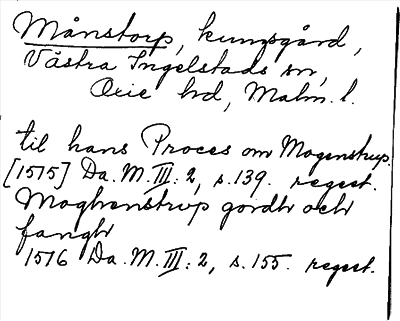 Månstorp, kungsgård,
Västra Ingelstads sn,
Oxie hd, Malm. l.
til hans Proces om Mogenstrup.
[1515] Da. M. III: 2, s. 139. regest.
Moghenstrup gordh och
fangh
1516 Da. M. III: 2, s. 155. regest.